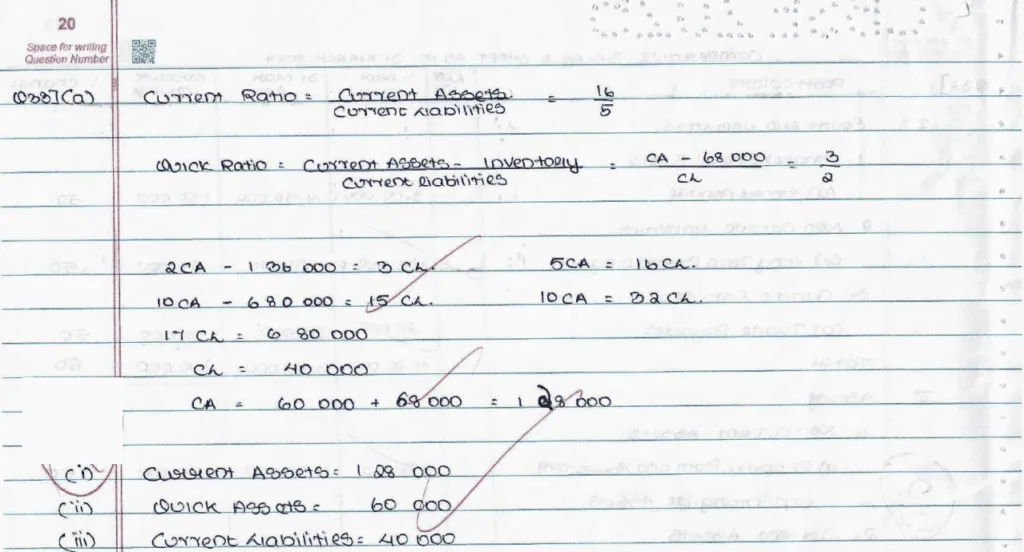 20
Space for writing
Question Number
Q33](a) Current Ratio = Current Assets / Current Liabilities = 16/5
Quick Ratio = Current Assets - Inventory / Current Liabilities = CA - 68 000 / CL = 3/2
2CA - 1 36 000 = 3 CL. 5CA = 16CL.
10CA - 6 80 000 = 15 CL. 10CA = 32CL.
17 CL = 6 80 000
CL = 40 000
CA = 60 000 + 68 000 = 1 28 000
(i) Current Assets = 1 28 000
(ii) Quick Assets = 60 000
(iii) Current Liabilities = 40 000